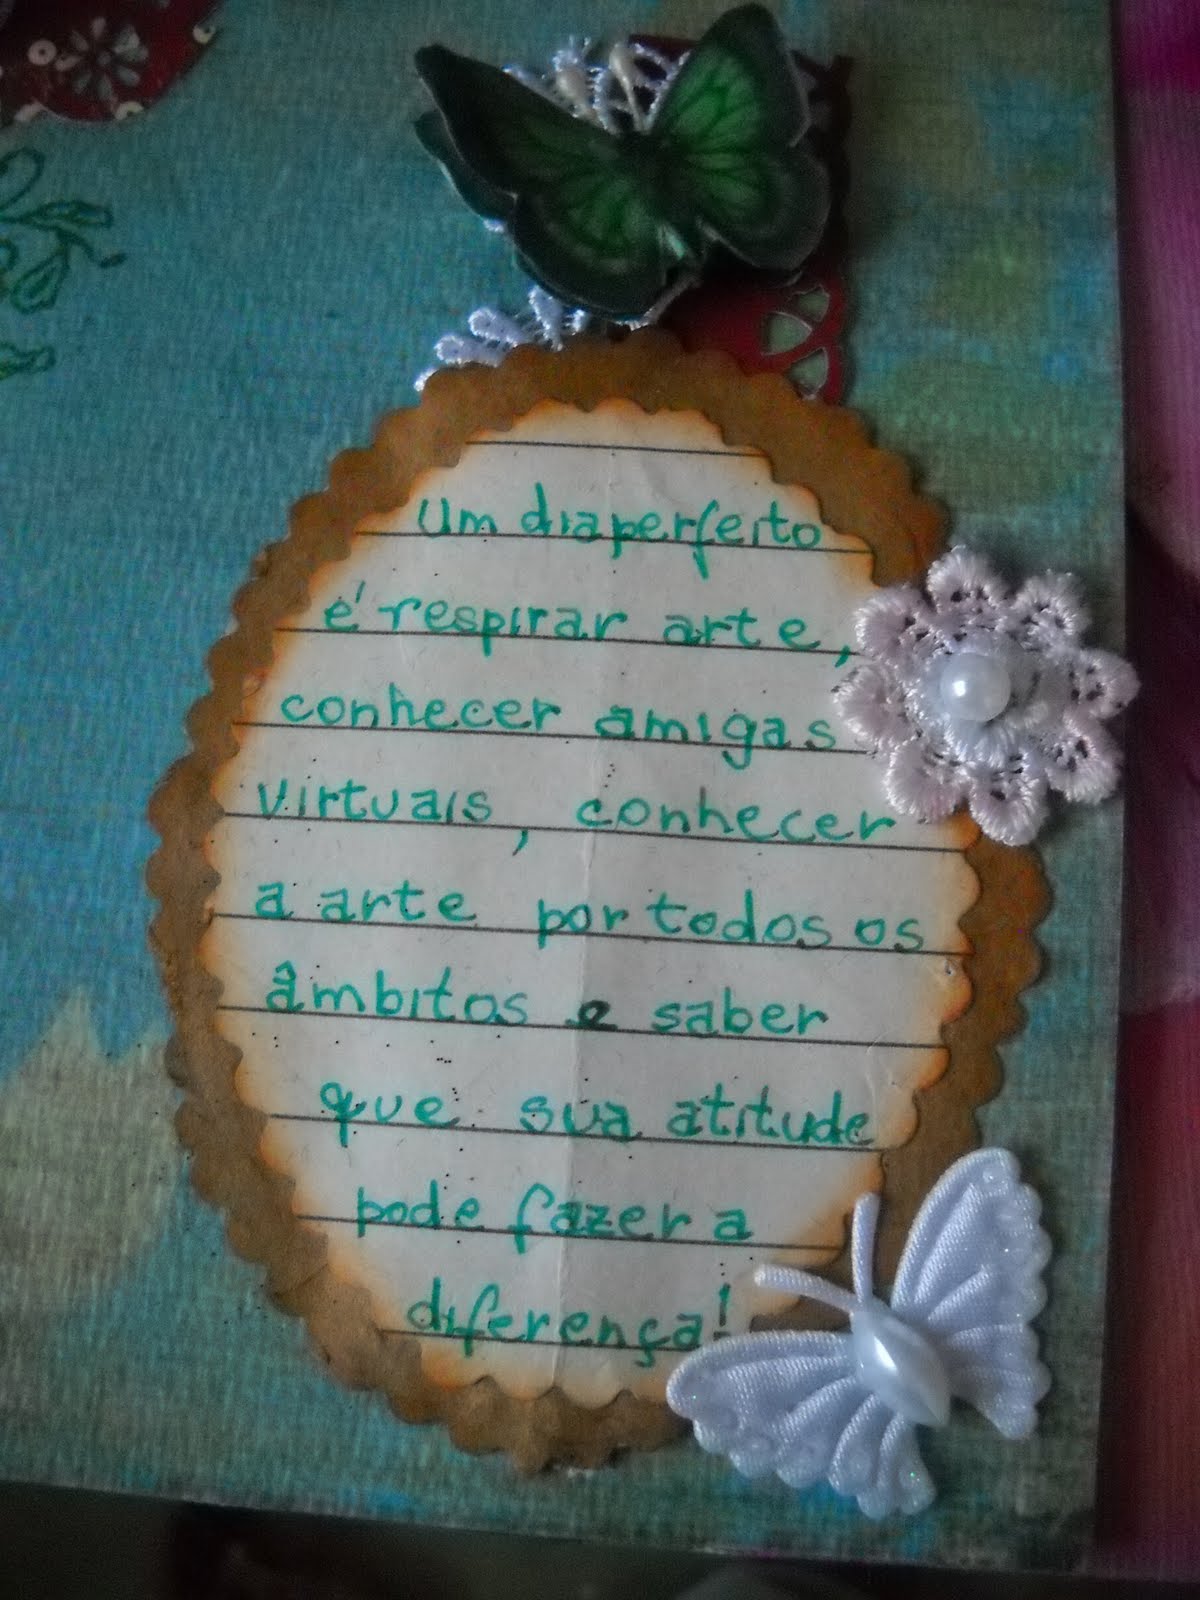 Um dia perfeito
é respirar arte,
conhecer amigas
virtuais, conhecer
a arte por todos os
âmbitos e saber
que sua atitude
pode fazer a
diferença!